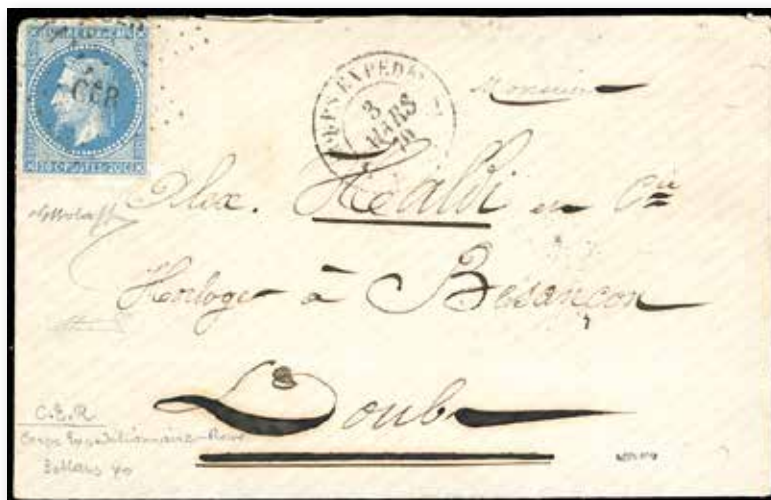 CER
20 C POSTES 20 C
CORPS EXPED
3
MARS
70
Monsieur
Alex. Healdi en Cie
Horloger à Besançon
Doubs
C.E.R
Corps Expéditionnaire Rome
3 Mars 70